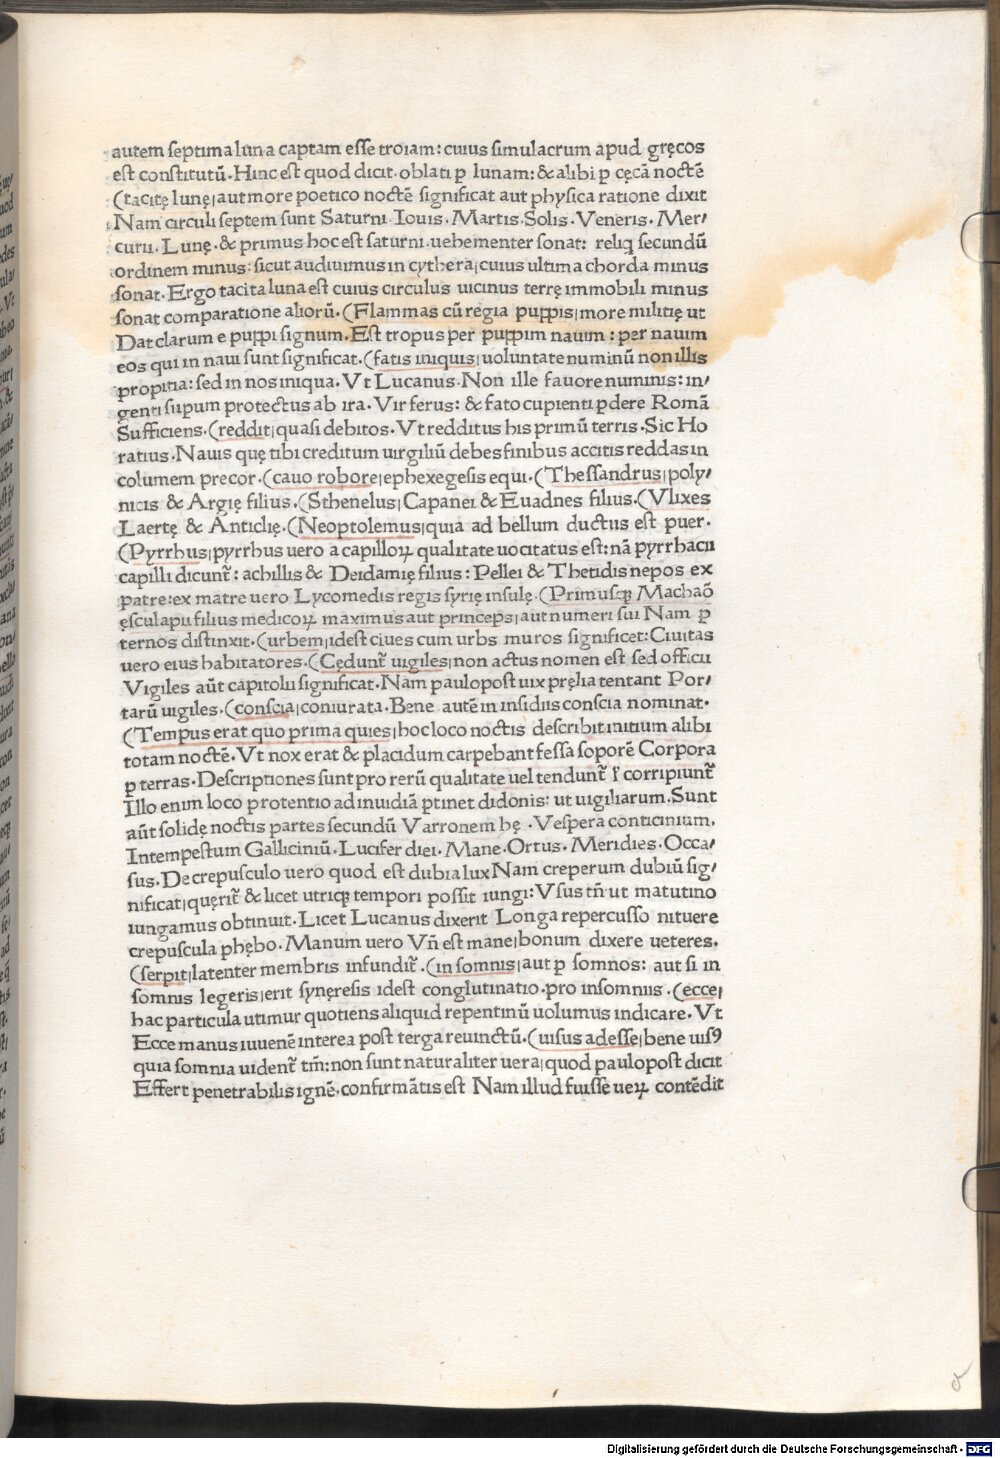 autem septima luna captam esse troiam: cuius simulacrum apud gręcos
est constitutū. Hinc est quod dicit. oblati ꝑ lunam: & alibi ꝑ cęcā noctē
(tacitę lunę|aut more poetico noctē significat aut physica ratione dixit
Nam circuli septem sunt Saturni. Iouis. Martis. Solis. Veneris. Mer/
curii. Lunę. & primus hoc est saturni. uehementer sonat: reliq̨ secundū
ordinem minus: sicut audiuimus in cythera|cuius ultima chorda minus
sonat. Ergo tacita luna est cuius circulus uicinus terrę immobili minus
sonat comparatione aliorū. (Flammas cū regia puppis|more militię ut
Dat clarum e puppi signum. Est tropus per puppim nauim: per nauim
eos qui in naui sunt significat. (fatis iniquis|uoluntate numinū non illis
propitia: sed in nos iniqua. Vt Lucanus. Non ille fauore numinis: in/
genti supum protectus ab ira. Vir ferus: & fato cupienti ꝑdere Romā
Sufficiens. (reddit|quasi debitos. Vt redditus his primū terris. Sic Ho
ratius. Nauis quę tibi creditum uirgiliū debes finibus accitis reddas in
columem precor. (cauo robore|ephexegesis equi. (Thessandrus|poly/
nicis & Argię filius. (Sthenelus|Capanei & Euadnes filius. (Vlixes
Laertę & Anticlię. (Neoptolemus|quia ad bellum ductus est puer.
(Pyrrhus|pyrrhus uero a capilloꝝ qualitate uocitatus est: nā pyrrhacii
capilli dicunt̃: achillis & Deidamię filius: Pellei & Thetidis nepos ex
patre: ex matre uero Lycomedis regis syrię insulę. (Primusqꝫ Machaō
ęsculapii filius medicoꝝ maximus aut princeps|aut numeri sui Nam ꝑ
ternos distinxit. (urbem|idest ciues cum urbs muros significet: Ciuitas
uero eius habitatores. (Cędunt̃ uigiles|non actus nomen est sed officii
Vigiles aūt capitolii significat. Nam paulo post uix pręlia tentant Por/
tarū uigiles. (conscia|coniurata. Bene autē in insidiis conscia nominat.
(Tempus erat quo prima quies|hoc loco noctis describit initium alibi
totam noctē. Vt nox erat & placidum carpebant fessa soporē Corpora
ꝑ terras. Descriptiones sunt pro rerū qualitate uel tendunt̃ ĩ corripiunt̃
Illo enim loco protentio ad inuidiā ꝑtinet didonis: ut uigiliarum. Sunt
aūt solidę noctis partes secundū Varronem hę. Vespera conticinium.
Intempestum Galliciniū. Lucifer diei. Mane. Ortus. Meridies. Occa/
sus. De crepusculo uero quod est dubia lux Nam creperum dubiū sig/
nificat|quęrit̃ & licet utriqꝫ tempori possit iungi: Vsus tñ ut matutino
iungamus obtinuit. Licet Lucanus dixerit Longa repercusso nituere
crepuscula phębo. Manum uero Vñ est mane|bonum dixere ueteres.
(serpit|latenter membris infundit̃. (in somnis|aut ꝑ somnos: aut si in
somnis legeris|erit synęresis idest conglutinatio. pro insomniis. (ecce|
hac particula utimur quotiens aliquid repentinū uolumus indicare. Vt
Ecce manus iuuenē interea post terga reuinctū. (uisus adesse|bene uisꝰ
quia somnia uident̃ tm̃: non sunt naturaliter uera|quod paulo post dicit
Effert penetrabilis ignē. confirmātis est Nam illud fuisse ueꝝ contēdit
Digitalisierung gefördert durch die Deutsche Forschungsgemeinschaft - DFG